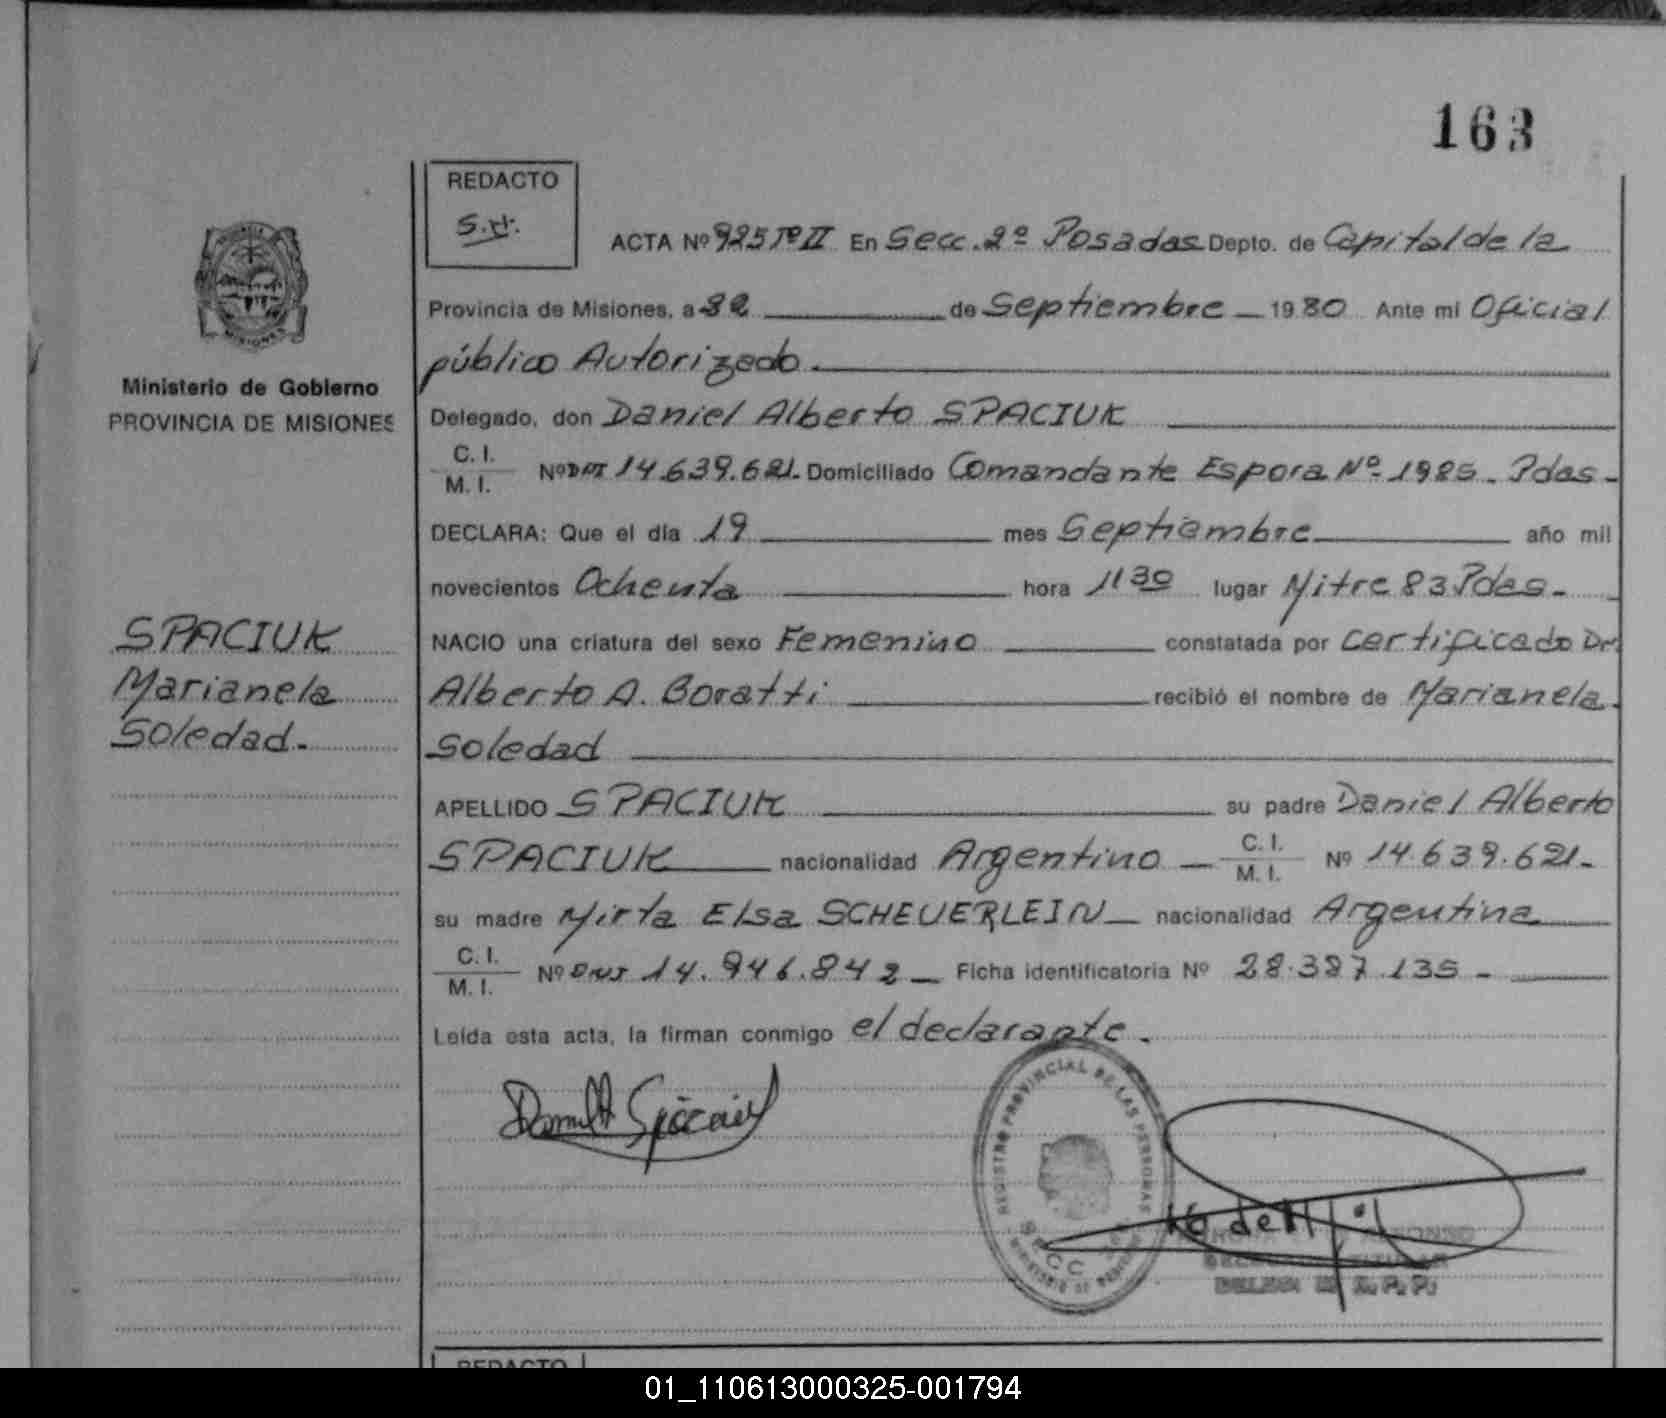 163
REDACTO
S.H.
ACTA Nº 925 Tº II En Secc. 2º Posadas Depto. de Capital de la
Provincia de Misiones, a 22 de Septiembre 1980 Ante mi Oficial
público Autorizado.
Ministerio de Gobierno
PROVINCIA DE MISIONES
Delegado, don Daniel Alberto SPACIUK
C. I.
M. I. Nº DNI 14.639.621. Domiciliado Comandante Espora Nº 1985. Pdas.
DECLARA: Que el día 19 mes Septiembre año mil
novecientos Ochenta hora 11 30 lugar Mitre 83 Pdas.
SPACIUK
Marianela
Soledad.
NACIO una criatura del sexo Femenino constatada por Certificado Dr.
Alberto A. Boratti recibió el nombre de Marianela
Soledad
APELLIDO SPACIUK su padre Daniel Alberto
SPACIUK nacionalidad Argentino C. I.
M. I. Nº 14.639.621.
su madre Mirta Elsa SCHEUERLEIN nacionalidad Argentina
C. I.
M. I. Nº DNI 14.946.842 Ficha identificatoria Nº 28.387.135.
Leída esta acta, la firman conmigo el declarante.
REGISTRO PROVINCIAL DE LAS PERSONAS
REDACTO
01_110613000325-001794